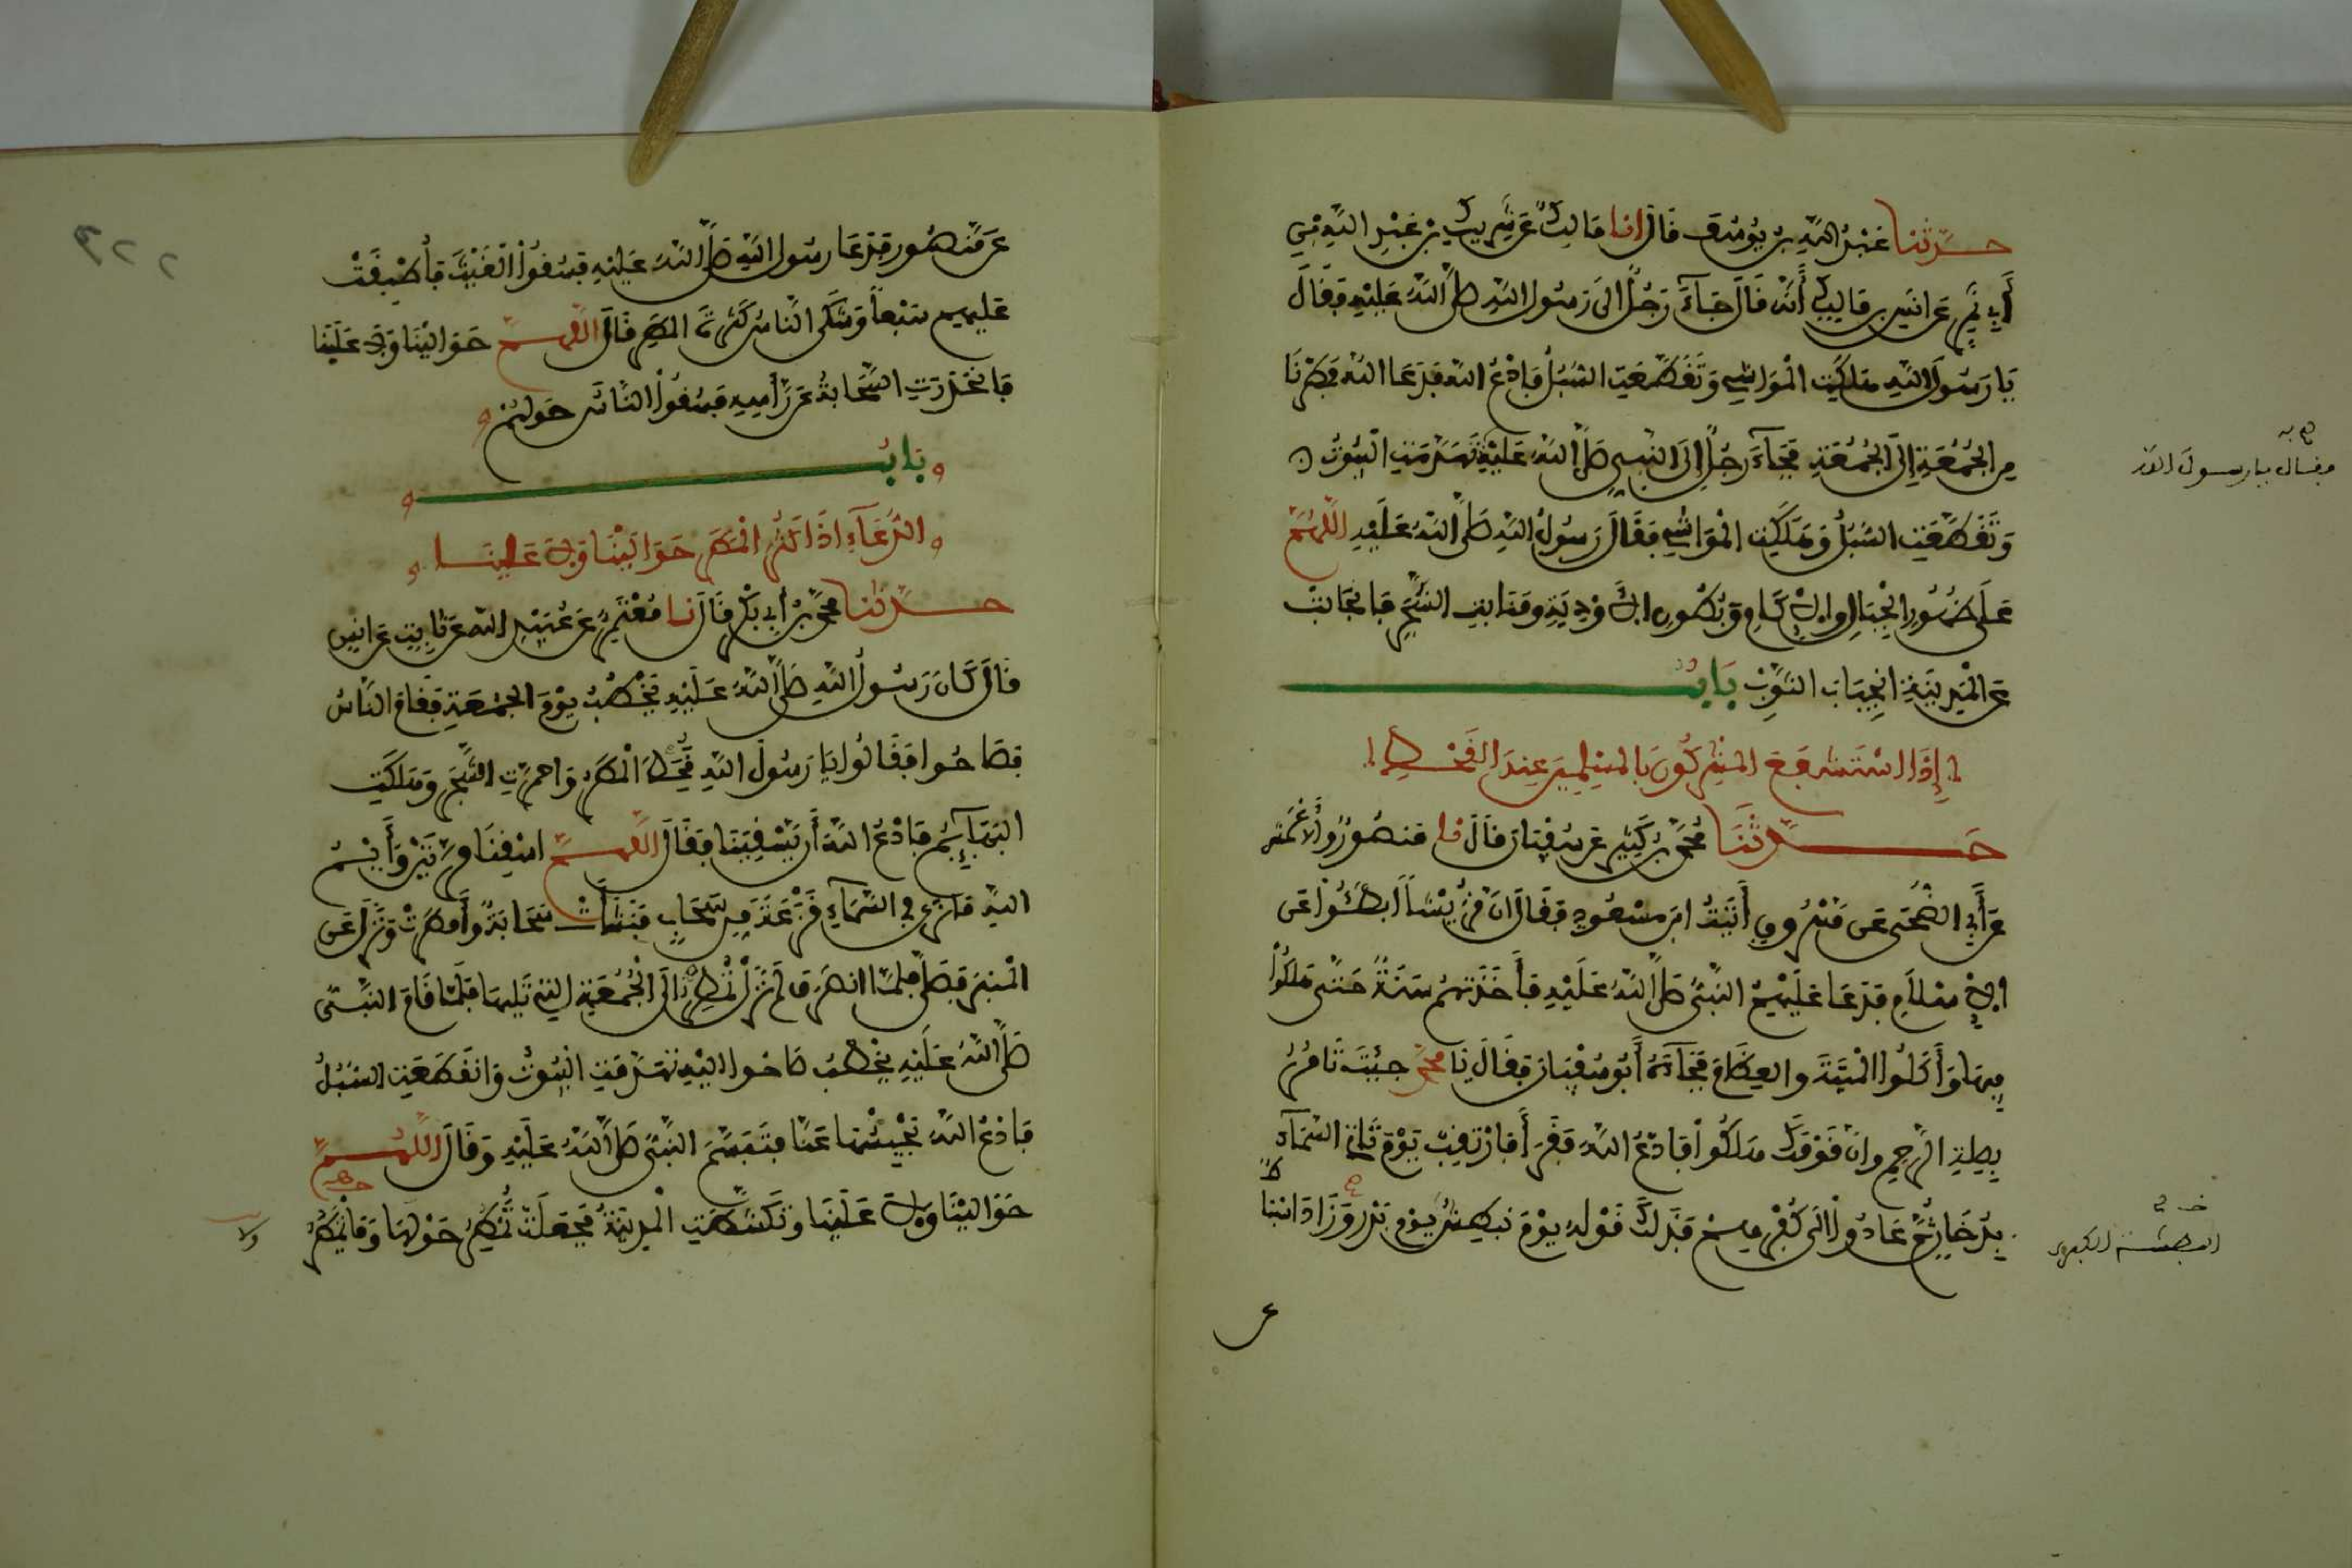 حدثنا عبد الله بن يوسف قال انا مالك عن شريك بن عبد الله بن
أبي نمر عن انس بن مالك أنه قال جآء رجل الى رسول الله صلى الله عليه فقال
يا رسول الله هلكت المواشي وتقطعت السبل فادع الله فدعا الله فمطرنا
من الجمعة إلى الجمعة فجآء رجل إلى النبي صلى الله عليه تهدمت البيوت
وتقطعت السبل وهلكت المواشي فقال رسول الله صلى الله عليه اللهم
على ظهور الجبال والاكام وبطون الاودية ومنابت الشجر فانجابت
عن المدينة انجياب الثوب باب
إذا استشفع المشركون بالمسلمين عند القحط
حدثنا محمد بن كثير عن سفيان قال نا منصور والاعمش
عن أبي الضحى عن مسروق أتيت ابن مسعود فقال ان قريشا ابطئوا عن
الاسلام فدعا عليهم النبي صلى الله عليه فأخذتهم سنة حتى هلكوا
فيها وأكلوا الميتة والعظام فجآءه أبو سفيان فقال يا محمد جئت تامر
بصلة الرحم وان قومك هلكوا فادع الله فقرأ فارتقب يوم تاتي السمآء
بدخان ثم عادوا الى كفرهم فذلك قوله يوم نبطش يوم بدر وزاد اسباط
فقال يا رسول الله
البطشة الكبرى
عن منصور فدعا رسول الله صلى الله عليه فسقوا الغيث فأطبقت
عليهم سبعا وشكى الناس كثرة المطر قال اللهم حوالينا ولا علينا
فانحدرت السحابة عن رأسه فسقوا الناس حولهم
باب
الدعآء اذا كثر المطر حوالينا ولا علينا
حدثنا محمد بن أبي بكر قال نا معتمر عن عبيد الله عن ثابت عن انس
قال كان رسول الله صلى الله عليه يخطب يوم الجمعة فقام الناس
فصاحوا فقالوا يا رسول الله قحط المطر واحمرت الشجر وهلكت
البهائم فادع الله أن يسقينا فقال اللهم اسقنا مرتين وأيم
الله ما نرى في السمآء قزعة من سحاب فنشأت سحابة وأمطرت ونزل عن
المنبر فصلى فلما انصرف لم تزل تمطر الى الجمعة التي تليها فلما قام النبي
صلى الله عليه يخطب صاحوا اليه تهدمت البيوت وانقطعت السبل
فادع الله يحبسها عنا فتبسم النبي صلى الله عليه وقال اللهم
حوالينا ولا علينا وتكشطت المدينة فجعلت تمطر حولها وما تمطر
ولا